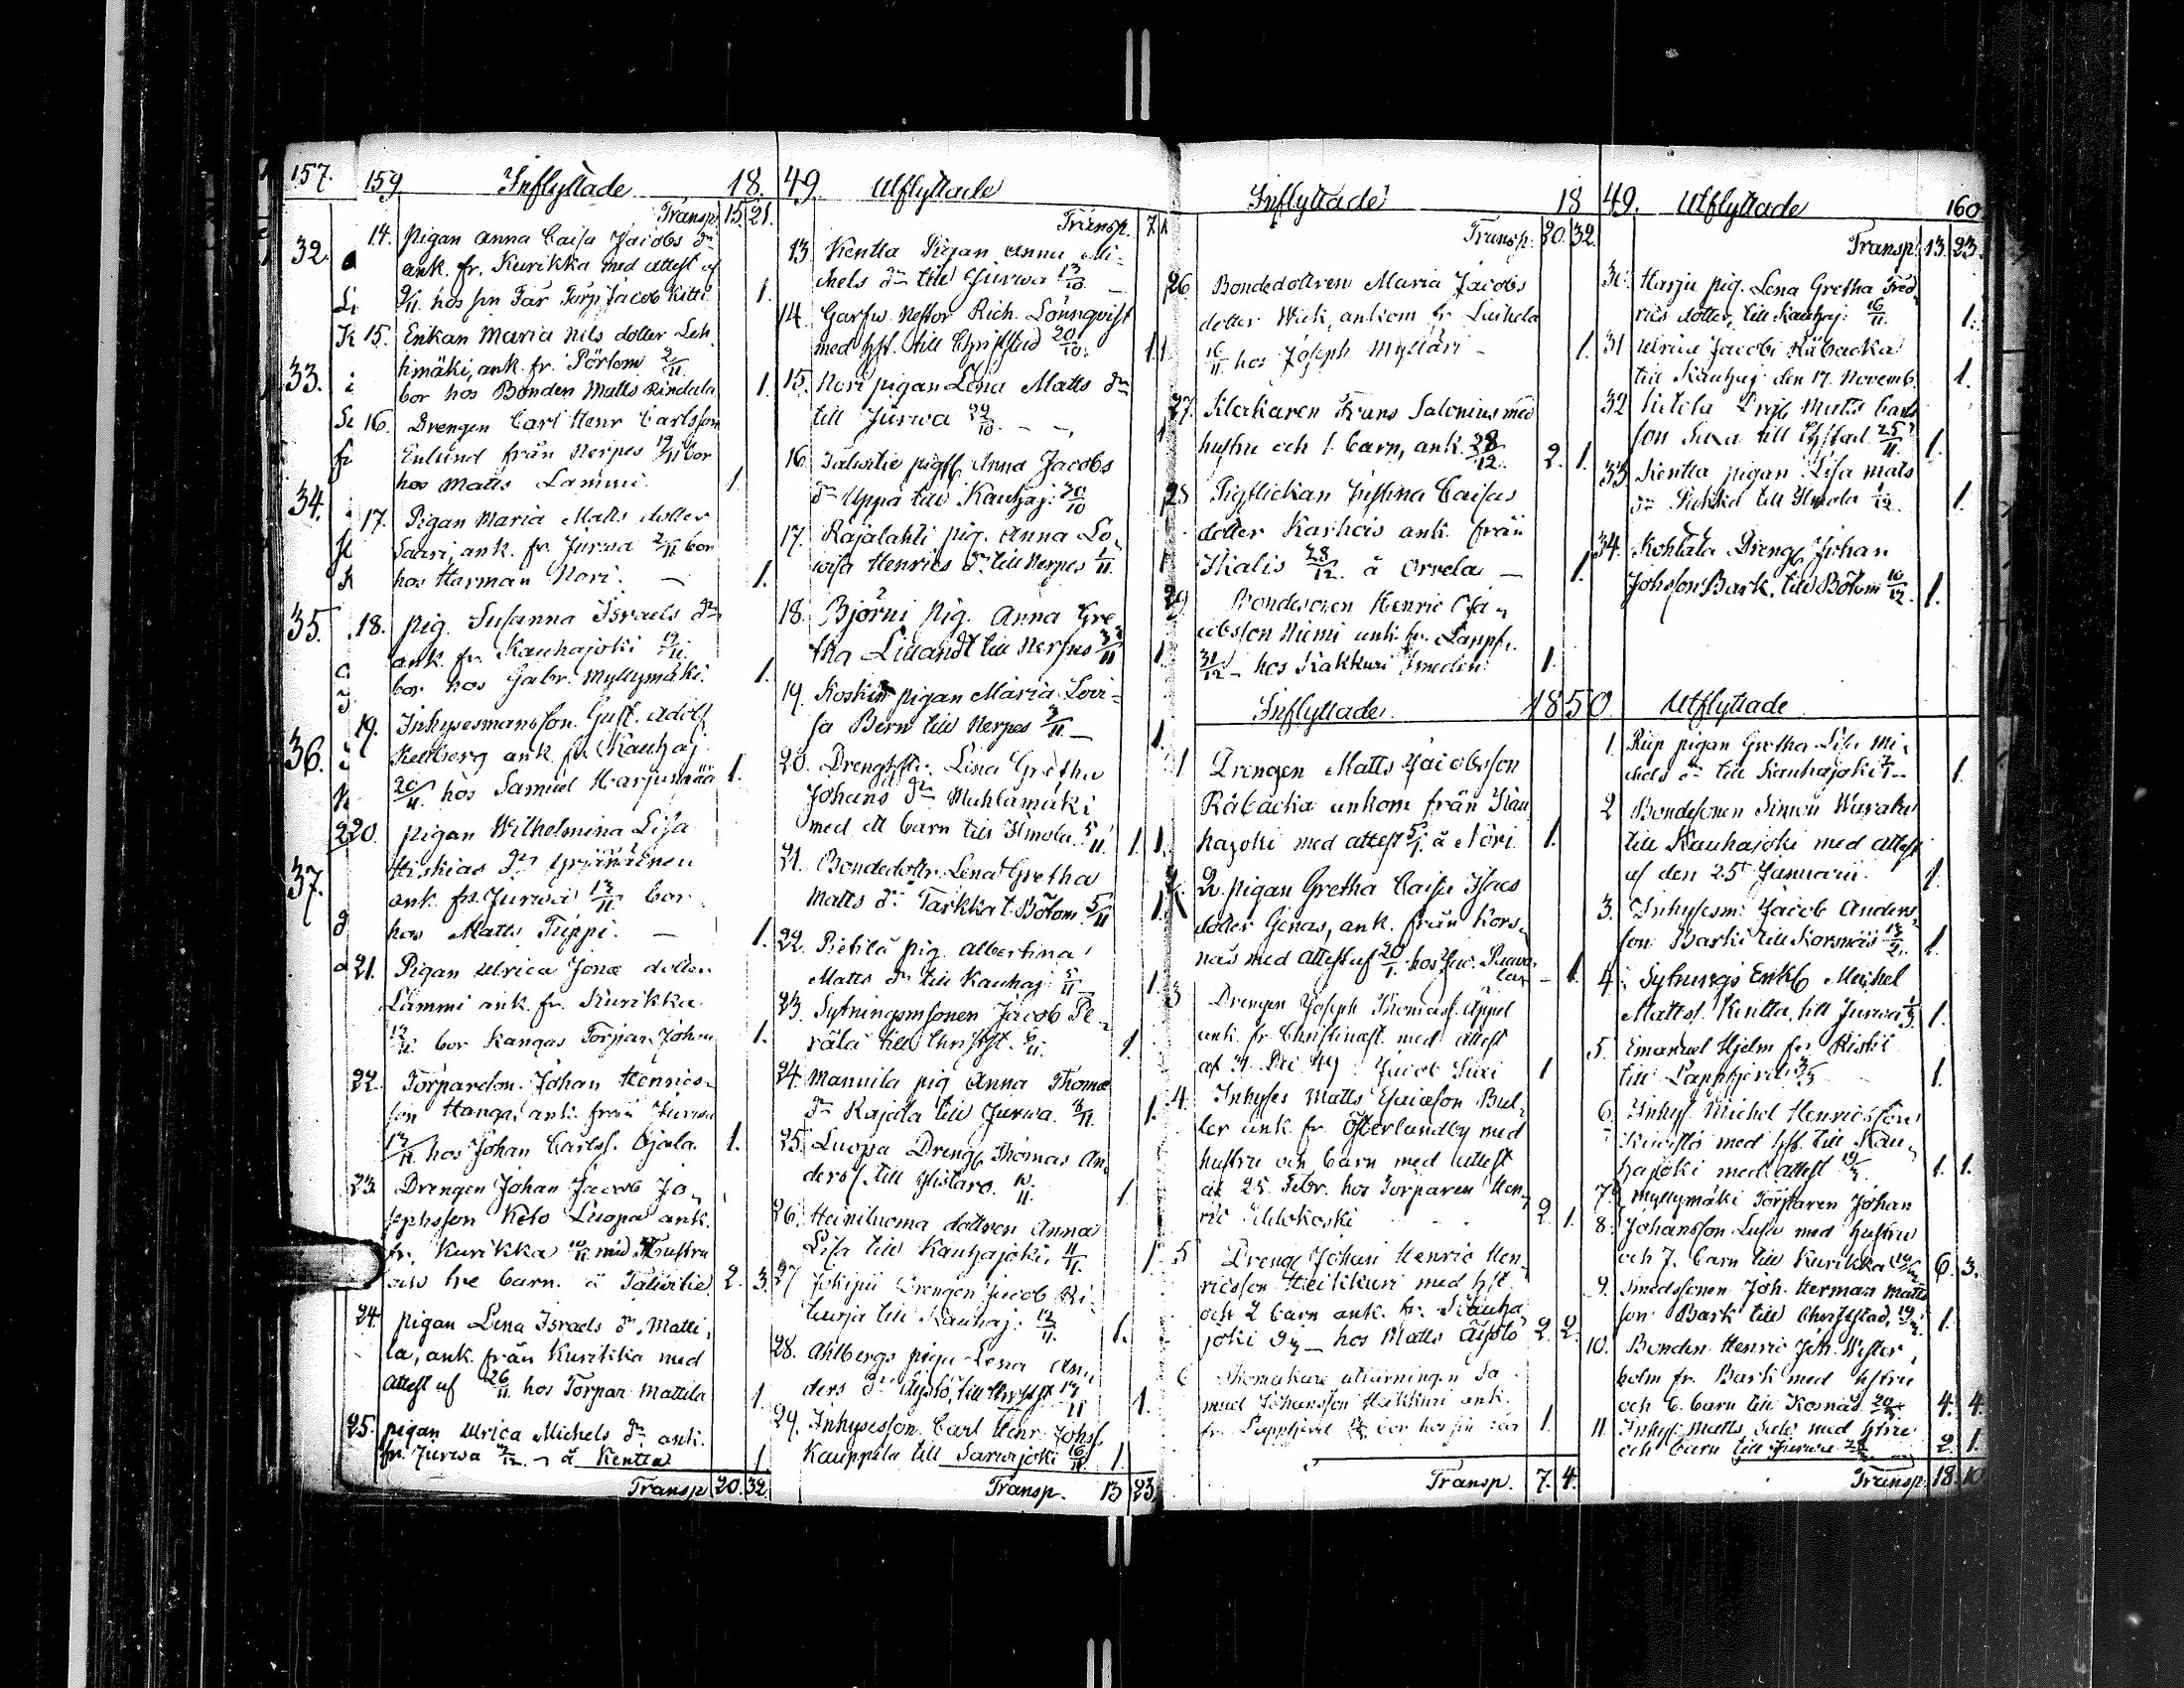 157.
32.
33.
34.
35.
36.
37.
159 Inflyttade 18.
Transp. 15. 21.
14. Pigan Anna Caisa Jacobs dr
ank. fr. Kurikka med attest af
9/11. hos sin Far Torp. Jacob Kitti 1.
15. Enkan Maria Nils dotter Leh
timäki, ank. fr. Pörtom 2/11.
bor hos Bonden Matts Rindala 1.
16. Drengen Carl Henr Carlsson
Enlund från Nerpes 19/11 bor
hos Matts Lammi. 1.
17. Pigan Maria Matts dotter
Saari, ank. fr. Jurwa 2/11 bor
hos Herman Nori. — 1.
18. Pig. Susanna Israels dr
ank. fr. Kauhajoki 19/11.
bor hos Gabr. Myllymäki. 1.
19. Inhysesmansson Gust. Adolf
Kellberg ank. fr. Kauhaj.
20/11. hos Samuel Harjunmää 1.
20. Pigan Wilhelmina Lisa
Hiskias dr
ank. fr. Jurwa 13/11 bor
hos Matts Trippi. — 1.
21. Pigan Ulrica Jonæ dotter
Lammi ank. fr. Kurikka
12/11. bor Kangas Torpar. Johan 1.
22. Torparson Johan Henrics-
son Hanga, ank. från Jurwa
13/11. hos Johan Carlss. Ojala. 1.
23. Drengen Johan Jacob Jo-
sephsson Keto Luopa ank.
fr. Kurikka 10/11 med Hustru
och tre barn. å Talwitie 2. 3.
24. Pigan Lena Israels dr Matti-
la, ank. från Kurikka med
attest af 26/11 hos Torpar Mattila 1.
25. Pigan Ulrica Michels dr ank.
fr. Jurwa å Kentta 1.
Transp 20. 32.
49. Utflyttade
Transp. 7
13 Kentta Pigan Anna Mi-
chels dr till Jurwa 13/10. —
14. Garfw. Nestor Rich. Lönnqvist
med hst. till Christstad 20/10. 1. 1.
15. Nori pigan Lena Matts dr
till Jurwa 29/10. — 1
16 Talwitie pigf. Anna Jacobs
dr Uppa till Kauhaj. 30/10
17. Rajalahti pig. Anna Lo-
wisa Henrics dr till Nerpes 1/11. 1
18. Björni Pig. Anna Gre-
tha Liliandt till Nerpes 1.
19. Koskin pigan Maria Lovi-
sa Bern till Nerpes 3/11 — 1.
20. Drenghstr. Lina Gretha
Johans dr Muhlamäki
med ett barn till Ilmola 5/11. 1. 1.
21. Bondedottr. Lena Gretha
Matts dr Tarkka t. Bötom 5/11 1.
22. Pietilä pig. Albertina
Matts dr till Kauhaj. 5/11 1.
23. Sytningsmsonen Jacob Pe-
rälä till Christst. 6/11. 1.
24. Mannila pig Anna Thomæ
dr Rajala till Jurwa. 1.
25. Luopa Dreng. Thomas An-
derss. till Ylistaro. 10/11. 1
26. Heiniluoma dottren Anna
Lisa till Kauhajoki. 11/11. 1
27 Jokipii Drengen Jacob Ri-
till Kauhaj: 12/11. 1.
28. Ahlbergs piga Lena An-
ders dr till Christst 13/11 1.
29. Inhysesson Carl Henr. Johss.
Kauppila till Sarwijoki 16/11 1.
Transp. 13 23.
Inflyttade 18
Transp. 20. 32.
26 Bondedottren Maria Jacobs
dotter Wiik, ankom fr. Laihela
16/11 hos Joseph Myllari — 1.
27. Klockaren Frans Salonius med
hustru och 1. barn, ank. 28/12. 2. 1.
28 Pigflickan Justina Caisas
dotter Karhais ank. från
Ikalis 28/12. å Orrela — 1.
29 Bondesonen Henric Ja-
cobsson Niemi ank. fr. Lappf.
31/12 — hos Kakkuri smeden 1.
Inflyttade 18
1 Drengen Matts Jacobsson
Råbacka ankom från Kau
hajoki med attest 5/1. å Nori. 1.
2. Pigan Gretha Caisa Isacs
dotter Genas, ank. från Kors-
näs med attest af 20/1. hos Jac. Ruava-
lax — 1.
3 Drengen Joseph Thomass. Äppel
ank. fr. Christinæst. med attest
af 31. Dec 49 Jacob Suxi 1
4. Inhyses Matts Esaiæson Bul-
ler ank. fr. Österlundby med
hustru och barn med attest
af 25. Febr. hos Torparen Hen-
ric 2. 1.
5 Dreng. Johan Henric Hen-
ricsson Heikkuri med hst.
och 2 barn ank. fr. Kauha
joki — hos Matts Äijälö 2. 2.
6 Skomakare utlärningen Sa-
muel Johansson Heikkuri ank.
fr. Lappfjerd bor hos sin Far 1.
Transp. 7. 4.
49. Utflyttade 160
Transp. 13. 23.
30. Harju pig. Lena Gretha Fred-
rics dotter, till Kauhaj: 16/11. 1.
31 Ulrica Jacobi Råbacka
till Kauhaj: den 17. Novemb. 1.
32 Pietila Drgb Matts Carls
son Suxa till Chstad. 25/11. 1.
33 Kentta pigan Lisa Mats
dr till Ilmola 1/12. 1.
34. Kohtala Dreng. Johan
Johsson Bark, till Bötom 10/12. 1.
50 Utflyttade
1. Riip pigan Gretha Lisa Mi-
chels dr till Kauhajoki 1.
2 Bondesonen Simon Warahu
till Kauhajoki med attest
af den 25 Januarii. 1.
3. Inhysesm: Jacob Anders-
son Barki till Korsnäs 13/2. 1.
4. Sytnings Enkl. Michel
Matts. Kintta, till Jurwa 1/3. 1.
5. Emanuel Hjelm fr. Riski
till Lappfjerd 3/3 1.
6. Inhys. Michel Henricsson
med hst. till Kau-
hajoki med attest 19/3 1. 1.
7. Myllymäki Torparen Johan
8. Johansson Lusa med hustru
och 7. barn till Kurikka 6. 3.
9. Smedssonen Joh. Herman Matts
son Bark till Christstad, 1.
10. Bonden Henric Joh. Wester-
holm fr. Bark med hstru
och 6. barn till Korsnäs. 4. 4.
11 Inhys. Matts Salo med hstru
och barn till Jurwa 2. 1.
Transp. 18. 10